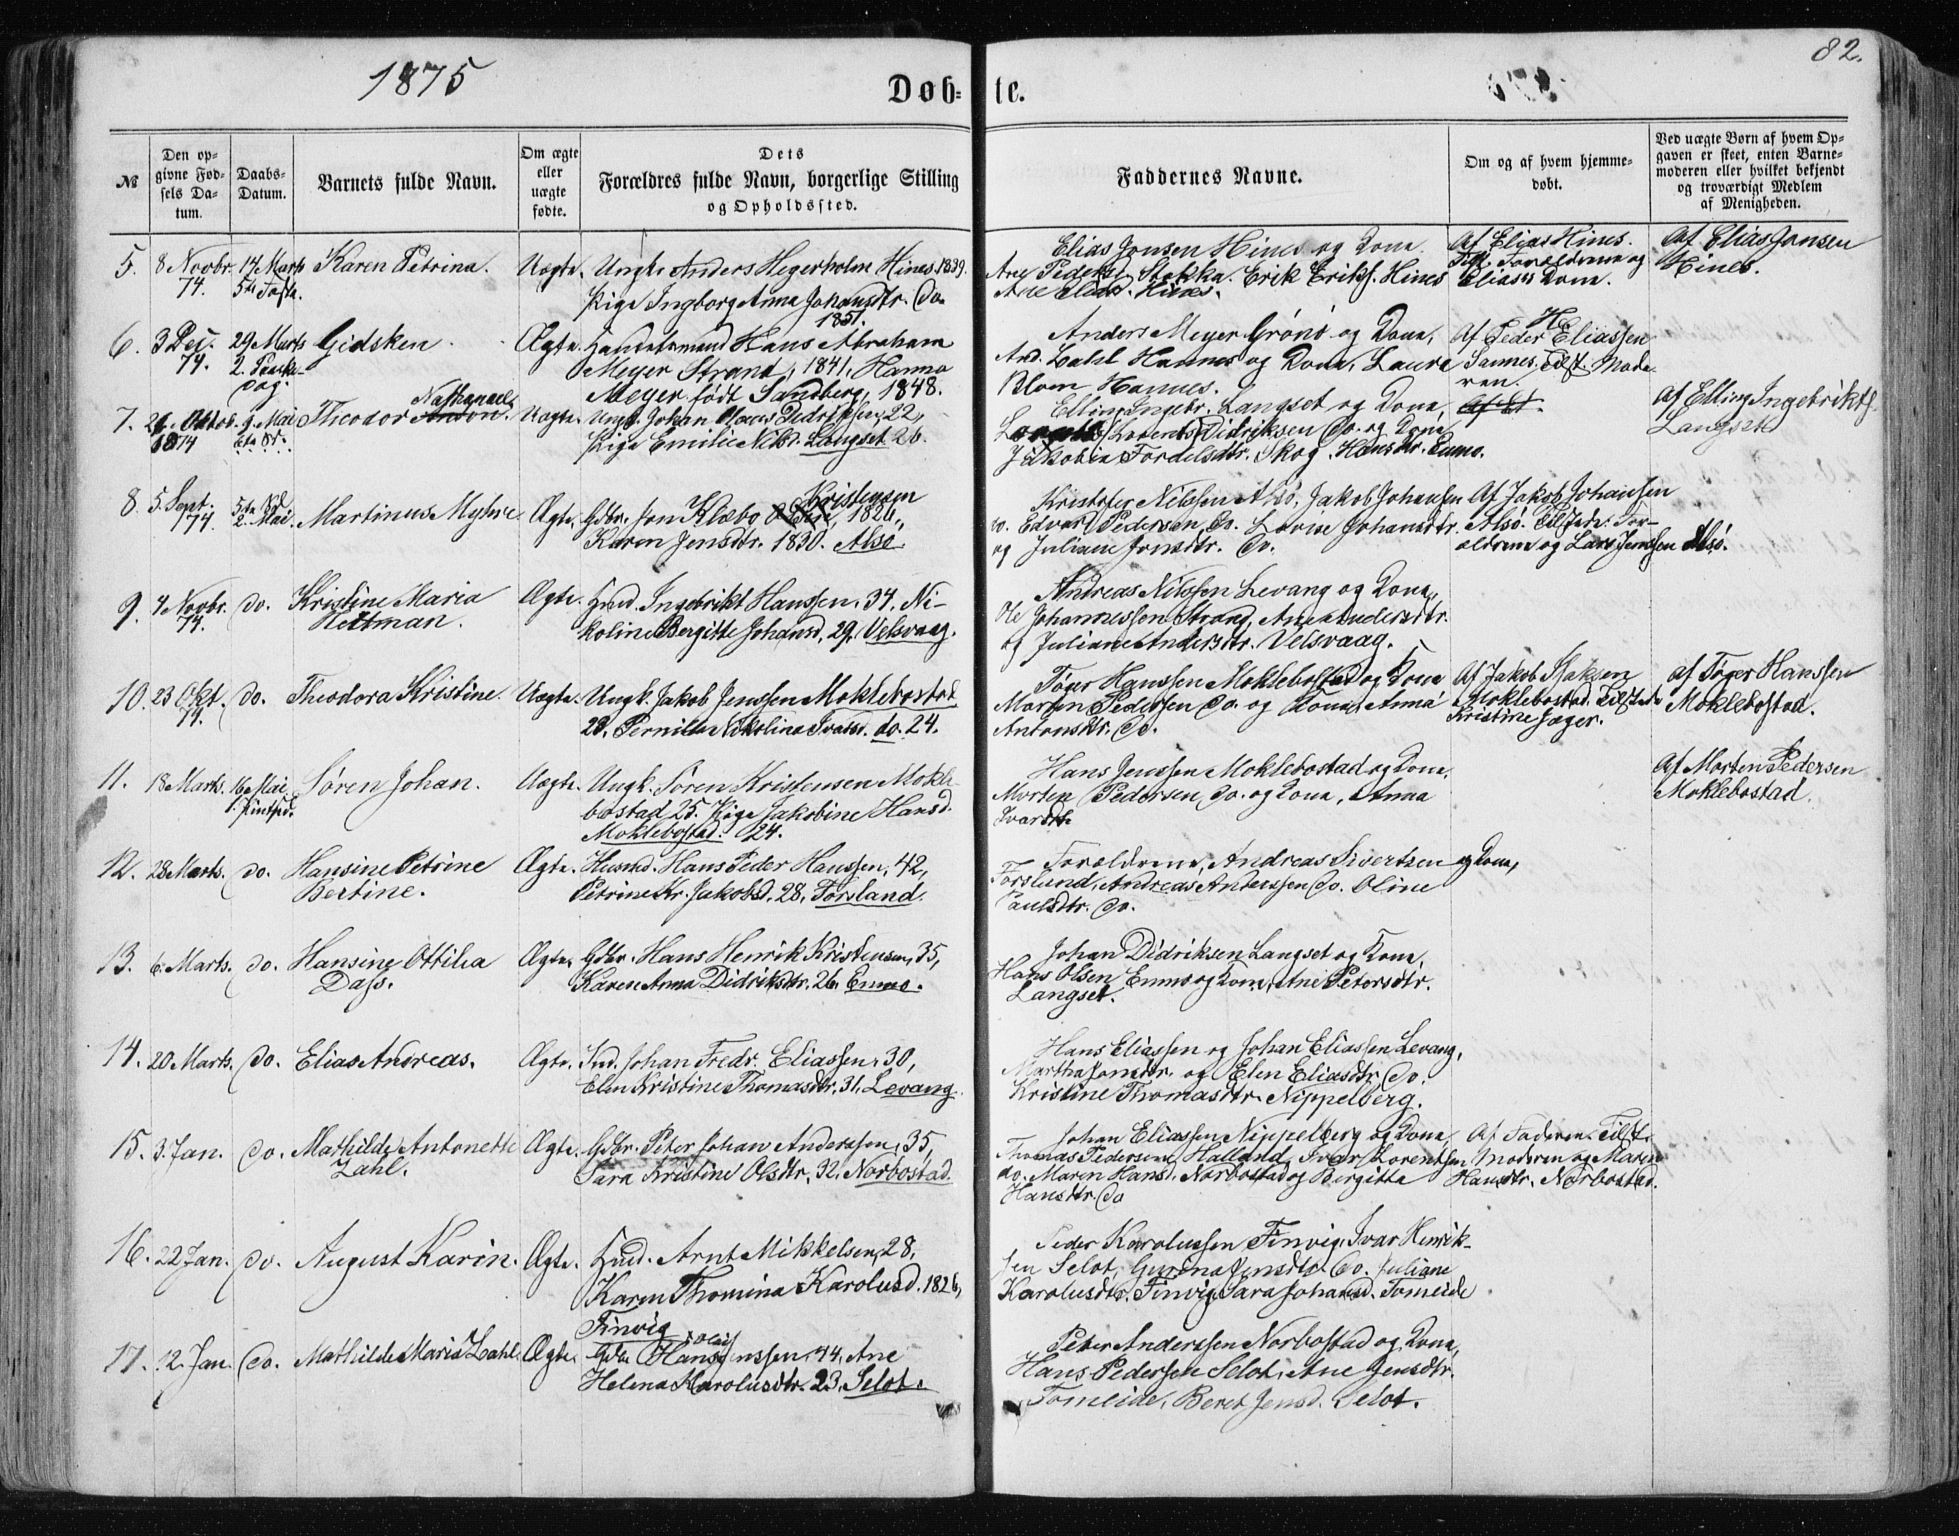 1875
82.
Døb-
te.
№
Den op-
givne Fød-
sels Da-
tum.
Daabs-
Datum.
Barnets fulde Navn.
Om ægte
eller
uægte
fødte.
Dets
Forældres fulde Navn, borgerlige Stilling
og Opholdssted.
Faddernes Navne.
Om og af hvem hjemme-
døbt.
Ved uægte Børn af hvem Op-
gaven er skeet, enten Barne-
moderen eller hvilket bekjendt
og troværdigt Medlem
af Menigheden.
5. 8 Novbr. 74. 14 Marts 5te Fasta. Karen Petrina. Uægte. Ungk. Anders Hegerholm Hines 1839.
Pige Ingborg Anna Johansdtr. do. 1851.
Elias Jonsen Hines og Kona.
Ane Stokka. Erik Eriks. Hines
Ane Hines.
Af Elias Hines.
Tilst. Forældrene og
Elias's Kona.
Af Elias Jonsen
Hines.
6. 3 Dec. 74. 29 Marts 2. Paaske-
dag. Gidsken. Ægte. Handelsmand Hans Abraham
Meyer Strand, 1841, Hanna
Meyer født Sandberg, 1848.
Anders Meyer Grønø og Kona,
And. Zahl Hannes og Kona, Laura
Blom Hannes.
Af Peder Eliassen
Sannes. Tilst. Mode-
ren.
7. 1874 9. Mai Theodor Nathanael Anton. Uægte. Ungk. Johan Olaus Didriksen, 22,
Pige Emilie Nilsd. Langset 26.
Elling Ingebr. Langset og Kona,
Lorents Didriksen do. og Kona,
Jakobin Tordelsdtr. Skog. Hans dtr. Enmo.
Af Elling Ingebrikts.
Langset
8. 5. Sept. 74. 2. Mai Martinus Myhre Ægte. Gdbr. Jon Klæbo Kristensen 1826,
Karen Jensdtr. 1830. Alsø
Kristofer Nilssen Alsø, Jakob Johansen
do. Edvart Pedersen do. Lovise Johansdtr.
og Juliane Jonsdtr. do.
Af Jakob Johansen
Alsø. Tilstede: For-
ældrene og Lars Jenssen Alsø.
9. 4 Novbr. 74. do. Kristine Maria
Heitman. Ægte. Hmd. Ingebrikt Hanssen, 34, Ni-
koline Bergitte Johansd, 29, Velsvaag.
Andreas Nilssen Levang og Kona,
Ole Johannessen Strand, Ane Andersdtr.
og Juliane Andersdtr. Velsvaag.
10. 23 Okt. 74. do. Theodora Kristine. Uægte. Ungk. Jakob Jenssen Moklebostad
28. Pernilla Nikolina Ivarsd. do. 24.
Tøger Hanssen Moklebostad og Kona
Morten Pedersen do. og Kona, Anna
Antonsdtr. do.
Af Jakob Isaksen
Moklebostad. Tilstede
Kristine Jæger.
af Tøger Hanssen
Moklebostad.
11. 18 Marts. 16 Mai 1. Pintsed. Søren Johan. Uægte. Ungk. Søren Kristensen Mokle-
bostad 25. Pige Jakobine Hansd.
Moklebostad. 24.
Hans Jenssen Moklebostad og Kona.
Morten Pedersen do. og Kona, Anna
Ivarsdtr.
Af Morten Pedersen
Moklebostad.
12. 28 Marts. do. Hansine Petrine
Bertine. Ægte. Husmd. Hans Peder Hanssen, 42,
Petrine Kr. Jakobsd. 28, Forsland.
Forældrene, Andreas Sivertsen og Kona,
Forsland, Andreas Anderssen do. Oline
Paulsdtr. do.
13. 6. Marts. do. Hansine Ottilia
Dass. Ægte. Gdbr. Hans Henrik Kristensen, 35,
Karen Anna Didriksdtr. 26. Enmo.
Johan Didriksen Langset og Kona,
Hans Olsen Enmo og Kona, Ane Petersdtr.
Langset.
14. 20 Marts. do. Elias Andreas. Ægte. Ind. Johan Fredr. Eliassen, 30,
Elen Kristine Thomasdtr. 31. Levang.
Hans Eliassen og Johan Eliassen Levang,
Martha Jonsdtr. og Elen Eliasdtr. do.
Kristine Thomasdtr. Nippelberg.
15. 3. Jan. do. Mathilde Antonette
Zahl. Ægte. Gdbr. Peter Johan Anderssen, 35,
Sara Kristine Olsdtr. 32. Norbostad.
Johan Eliassen Nippelberg og Kona,
Thomas Pedersen Halland, Ivar Lorentsen
do. Maren Hansd. Norbostad og Bergitta
Hansdtr. do
Af Faderen. Tilst.
Moderen og Maren
Hansdtr. Norbostad.
16. 22 Jan. do. August Karin. Ægte. Hmd. Arnt Mikkelsen, 28,
Karen Thomina Karolusd. 1826,
Finvig
Peder Karolussen Finvig. Ivar Henrik-
sen Seløt, Jensdtr. do. Juliane
Karolusdtr. Finvig Sara Johansd. Tomeide
17. 12. Jan. do. Mathilde Maria Zahl. Ægte. Gdbr. Hans Jenssen, 44, Ane
Helena Karolusdtr. 23, Seløt.
Peter Anderssen Norbostad og Kona,
Hans Pedersen Seløt, Ane Jensdtr.
Tomeide, Beret Jensd. Seløt.